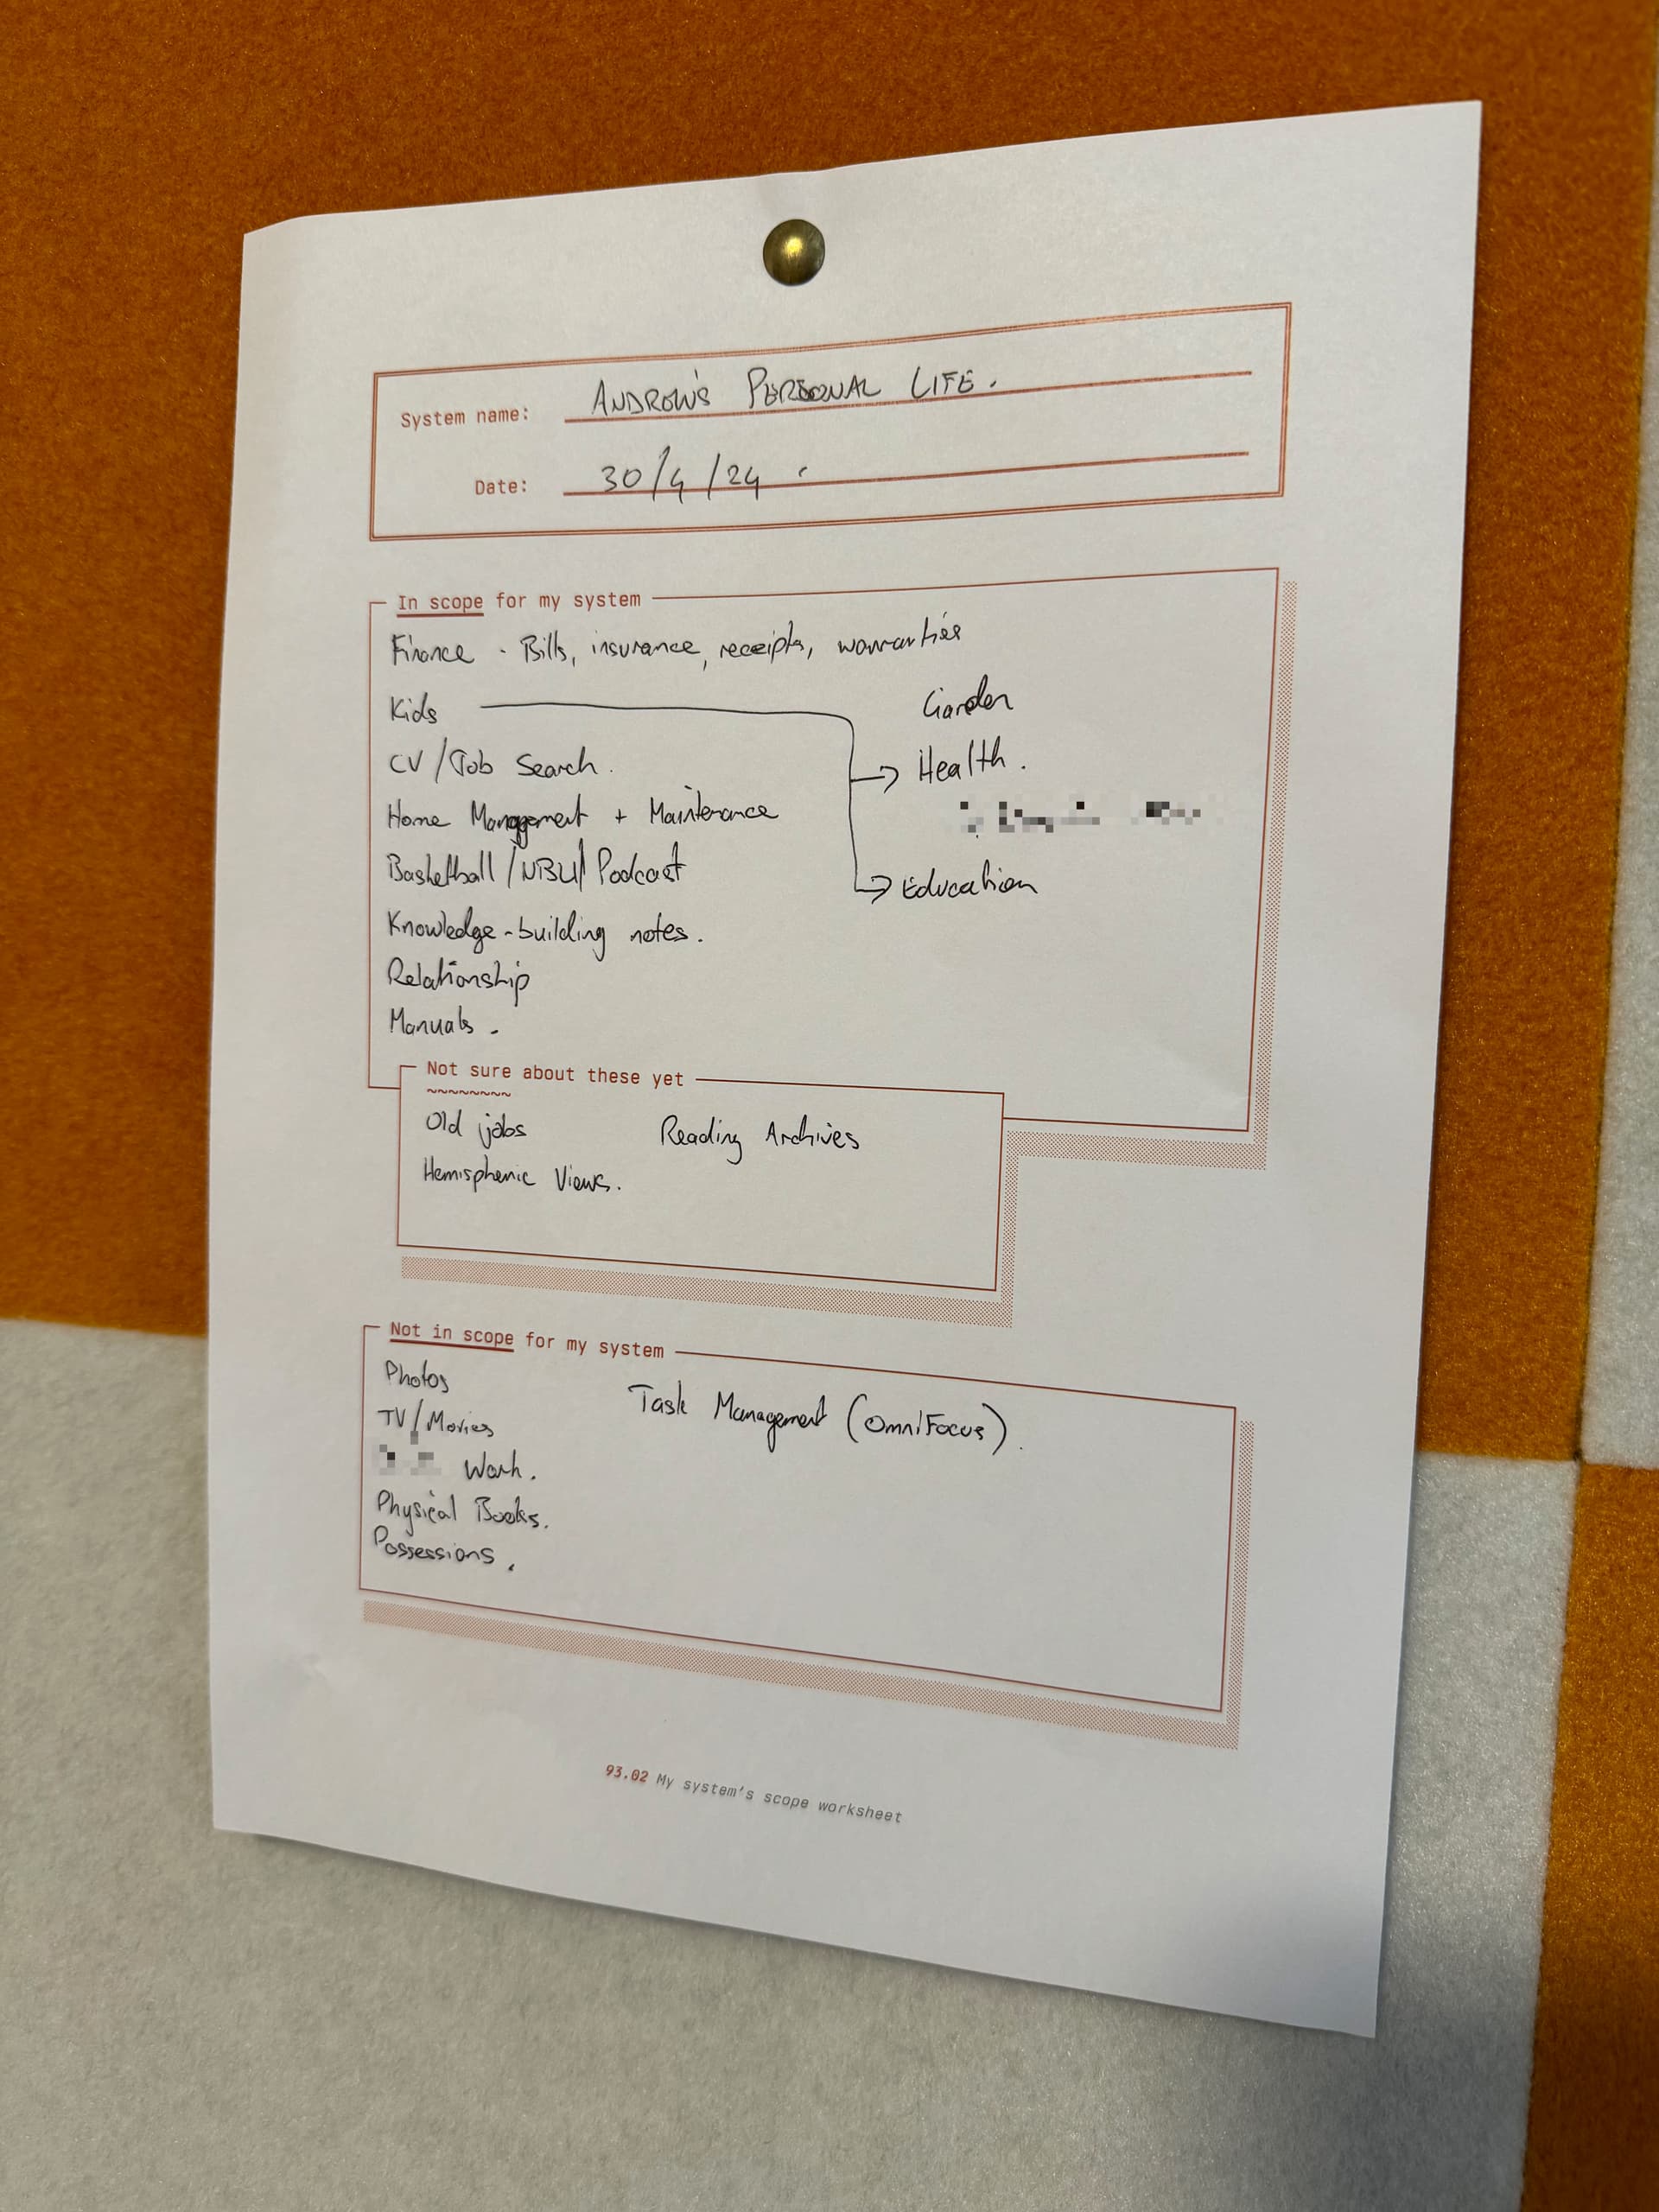 System name: ANDREW'S PERSONAL LIFE.
Date: 30/4/24
In scope for my system
Finance - Bills, insurance, receipts, warranties
Kids
CV/Job Search.
Home Management + Maintenance
Basketball/NBL/Podcast
Knowledge-building notes.
Relationship
Manuals.
Garden
Health.
Education
Not sure about these yet
Old jobs
Hemispheric Views.
Reading Archives
Not in scope for my system
Photos
TV/Movies
Work.
Physical Books.
Possessions.
Task Management (OmniFocus).
93.02 My system's scope worksheet